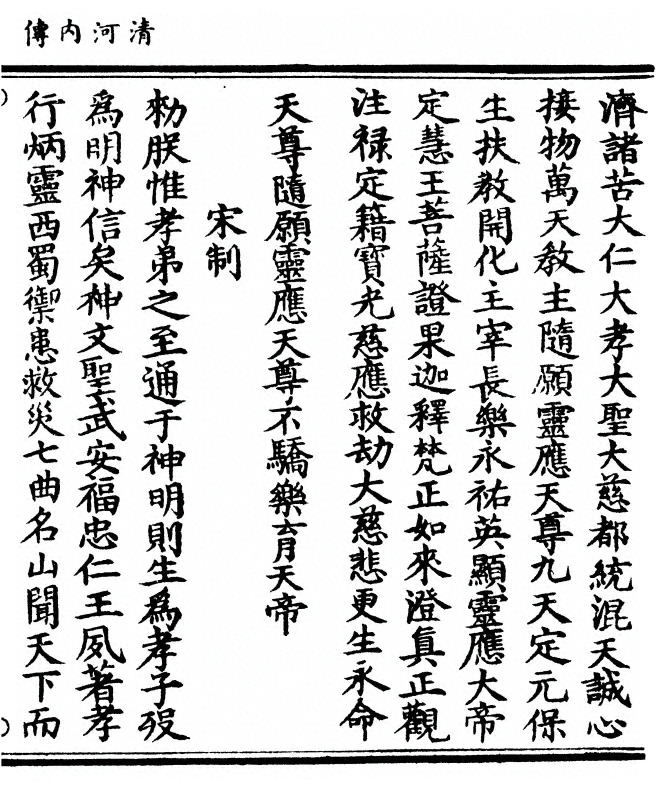 清河内傳
濟諸苦大仁大孝大聖大慈都統混天誠心
接物萬天教主隨願靈應天尊九天定元保
生扶教開化主宰長樂永祐英顯靈應大帝
定慧王菩薩證果迦釋梵正如來澄真正觀
注禄定籍寶光慈應救劫大慈悲更生永命
天尊隨願靈應天尊不驕樂育天帝
宋制
勑朕惟孝弟之至通于神明則生爲孝子殁
爲明神信矣神文聖武安福忠仁王夙著孝
行炳靈西蜀禦患救災七曲名山聞天下而